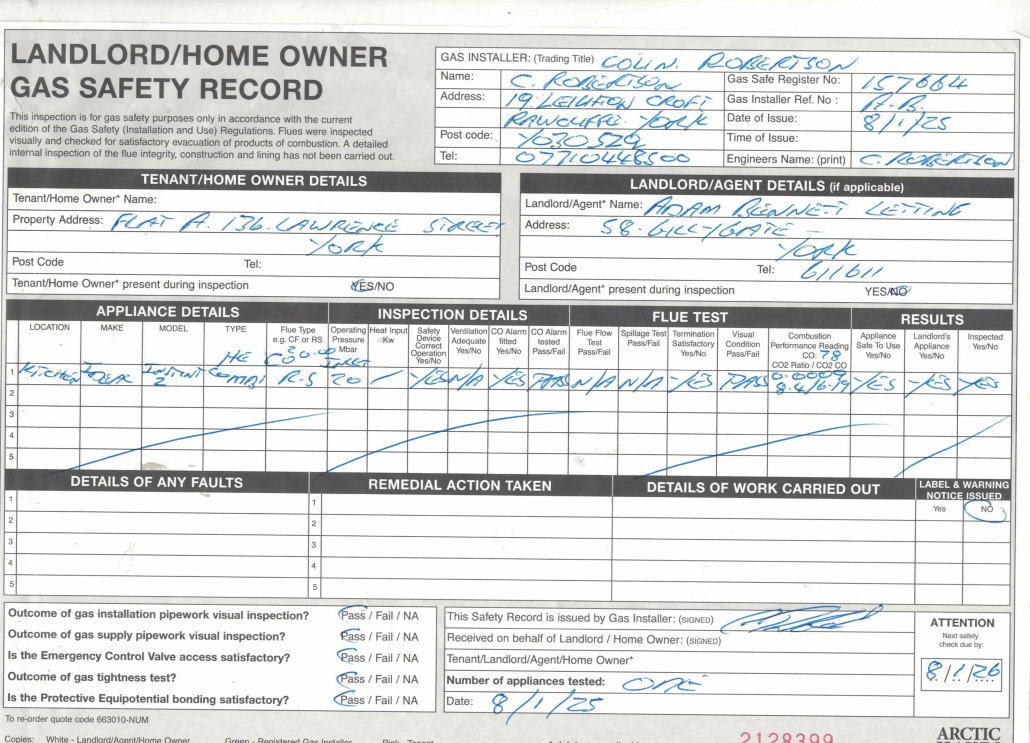 LANDLORD/HOME OWNER
GAS SAFETY RECORD
This inspection is for gas safety purposes only in accordance with the current
edition of the Gas Safety (Installation and Use) Regulations. Flues were inspected
visually and checked for satisfactory evacuation of products of combustion. A detailed
internal inspection of the flue integrity, construction and lining has not been carried out.
GAS INSTALLER: (Trading Title) COLIN. ROBERTSON
Name: C. ROBERTSON
Address: 19. LEIGHTON CROFT
RAWCLIFFE. YORK
Post code: YO30 5
Tel: 07710448500
Gas Safe Register No: 157664
Gas Installer Ref. No :
Date of Issue: 8/1/25
Time of Issue:
Engineers Name: (print) C. ROBERTSON
TENANT/HOME OWNER DETAILS
Tenant/Home Owner* Name:
Property Address: FLAT A. 136. LAWRENCE STREET
YORK
Post Code Tel:
Tenant/Home Owner* present during inspection YES/NO
LANDLORD/AGENT DETAILS (if applicable)
Landlord/Agent* Name: ADAM BENNETT LETTING
Address: 58. GILLYGATE –
YORK
Post Code Tel: 611611
Landlord/Agent* present during inspection YES/NO
APPLIANCE DETAILS INSPECTION DETAILS FLUE TEST RESULTS
LOCATION MAKE MODEL TYPE Flue Type e.g. CF or RS Operating Pressure Mbar Heat Input Kw Safety Device Correct Operation Yes/No Ventilation Adequate Yes/No CO Alarm fitted Yes/No CO Alarm tested Pass/Fail Flue Flow Test Pass/Fail Spillage Test Pass/Fail Termination Satisfactory Yes/No Visual Condition Pass/Fail Combustion Performance Reading CO: 78 CO2 Ratio / CO2 CO Appliance Safe To Use Yes/No Landlord's Appliance Yes/No Inspected Yes/No
HE INLET
1 KITCHEN IDEAL INSTINCT 2 COMBI R-S 20 / YES N/A YES PASS N/A N/A YES PASS 0.0009 YES YES YES
2
3
4
5
DETAILS OF ANY FAULTS REMEDIAL ACTION TAKEN DETAILS OF WORK CARRIED OUT LABEL & WARNING NOTICE ISSUED
Yes NO
1 1
2 2
3 3
4 4
5 5
Outcome of gas installation pipework visual inspection? Pass / Fail / NA
Outcome of gas supply pipework visual inspection? Pass / Fail / NA
Is the Emergency Control Valve access satisfactory? Pass / Fail / NA
Outcome of gas tightness test? Pass / Fail / NA
Is the Protective Equipotential bonding satisfactory? Pass / Fail / NA
This Safety Record is issued by Gas Installer: (SIGNED)
Received on behalf of Landlord / Home Owner: (SIGNED)
Tenant/Landlord/Agent/Home Owner*
Number of appliances tested: ONE
Date: 8/1/25
ATTENTION
Next safety
check due by:
8/1/26
To re-order quote code 663010-NUM
Copies: White - Landlord/Agent/Home Owner Green - Registered Gas Installer Pink - Tenant
2128399
ARCTIC